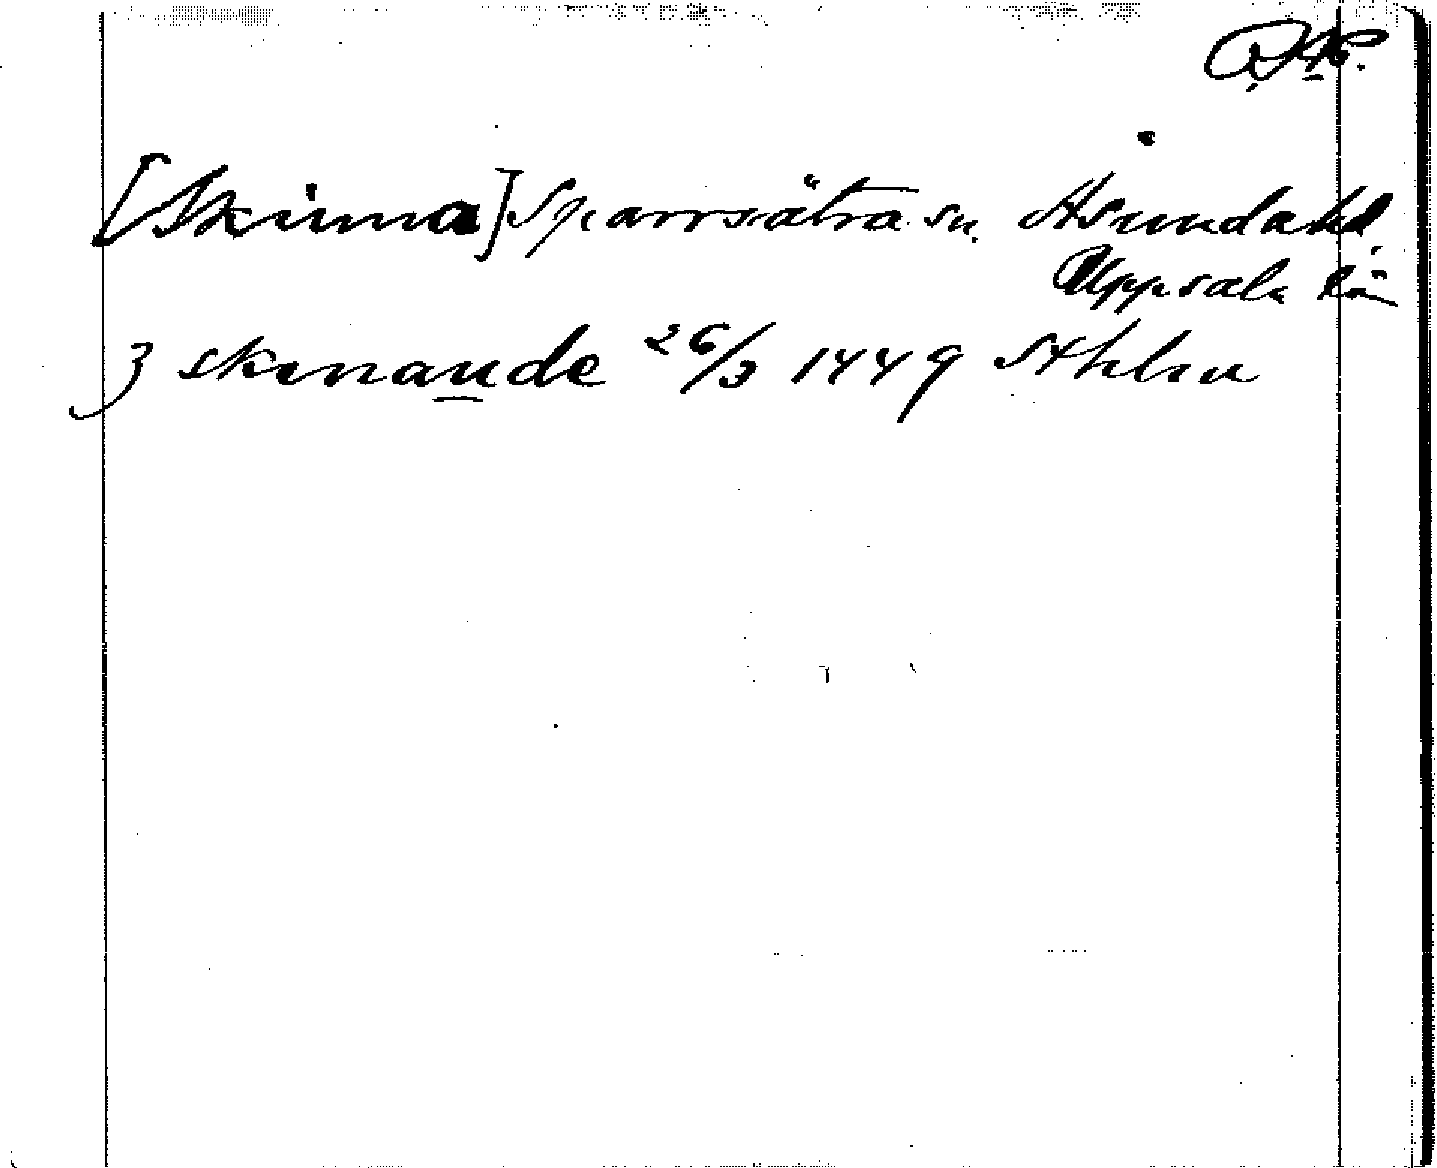 [Skinna] Sparrsätra sn. Åsundahd.
Uppsala län
J skinande 26/3 1449 Sthlm